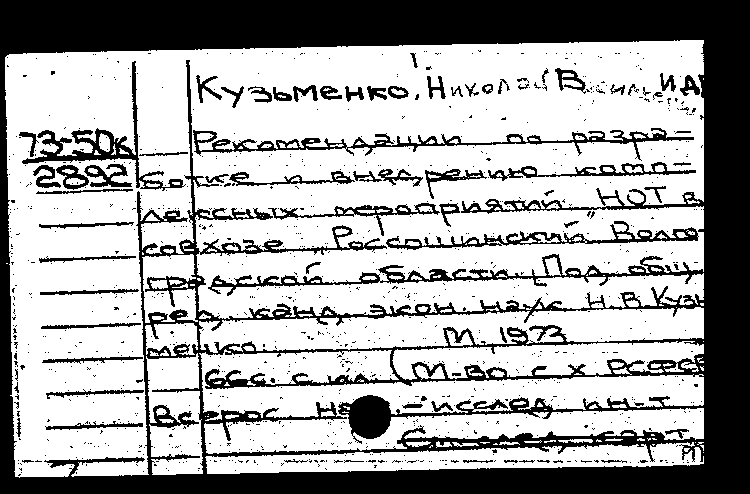 Кузьменко, Николай Васильевич и др
73-50к
2892
Рекомендации по разра-
ботке и внедрению комп-
лексных мероприятий НОТ в
совхозе "Россошинский" Волго-
градской области. [Под общ.
ред. канд. экон. наук Н. В. Кузь
менко. М., 1973
66с. с ил. (М-во с х РСФСР
Всерос. исслед. ин-т
След. карт.